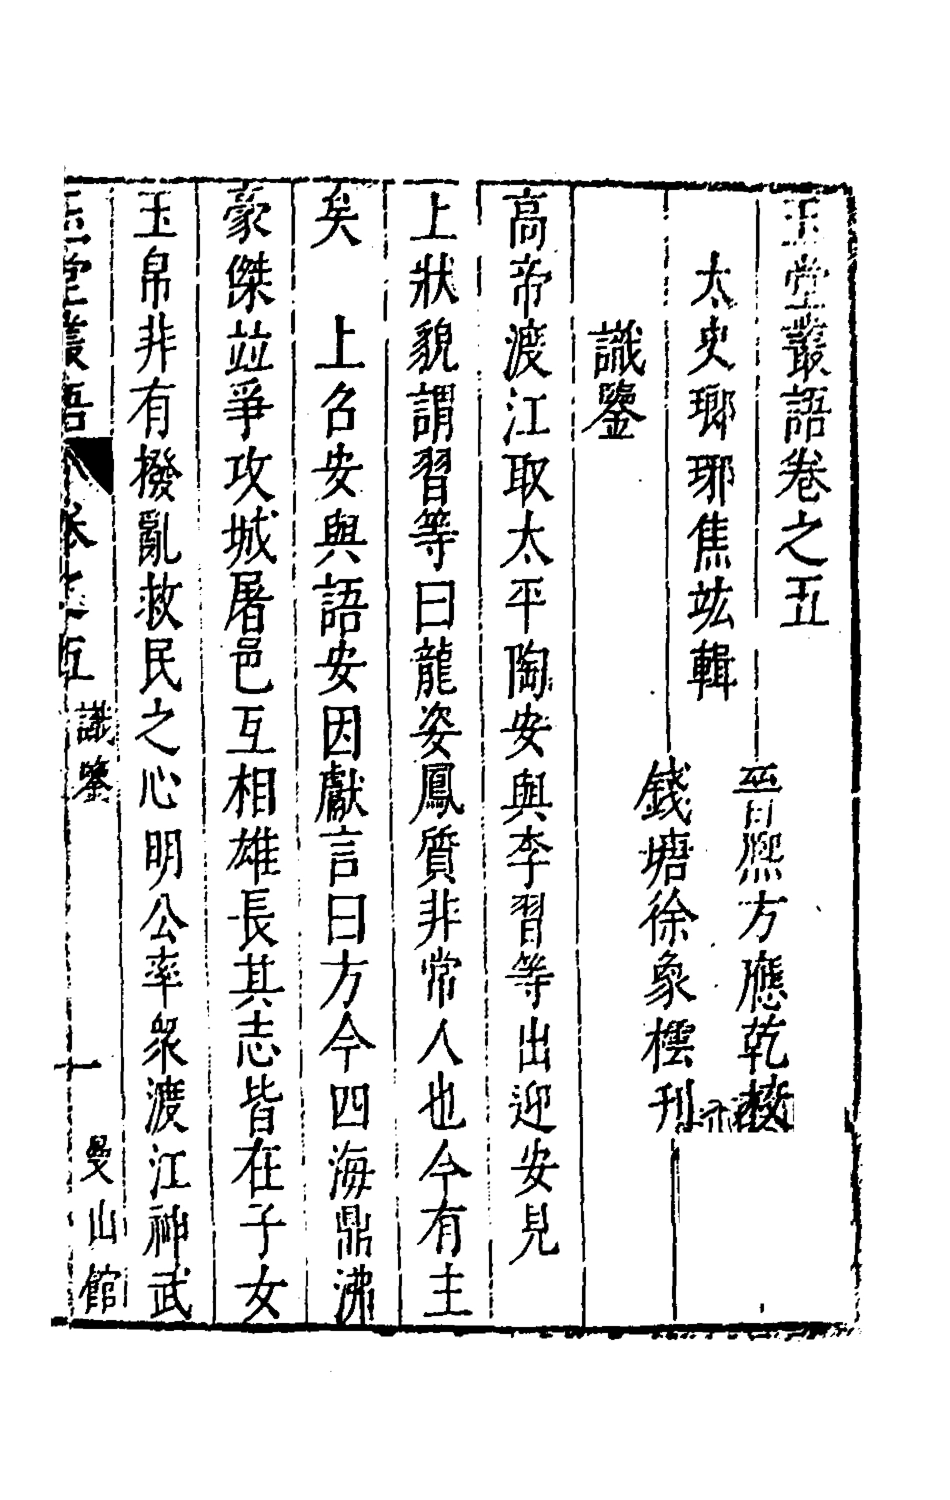 玉堂叢語卷之五
太史瑯琊焦竑輯
晉熙方應乾校
錢塘徐象橒刊
識鑒
高帝渡江取太平陶安與李習等出迎安見
上狀貌謂習等曰龍姿鳳質非常人也今有主
矣　上召安與語安因獻言曰方今四海鼎沸
豪傑竝爭攻城屠邑互相雄長其志皆在子女
玉帛非有撥亂救民之心明公率衆渡江神武
玉堂叢語 卷之五 識鑒 一 曼山館